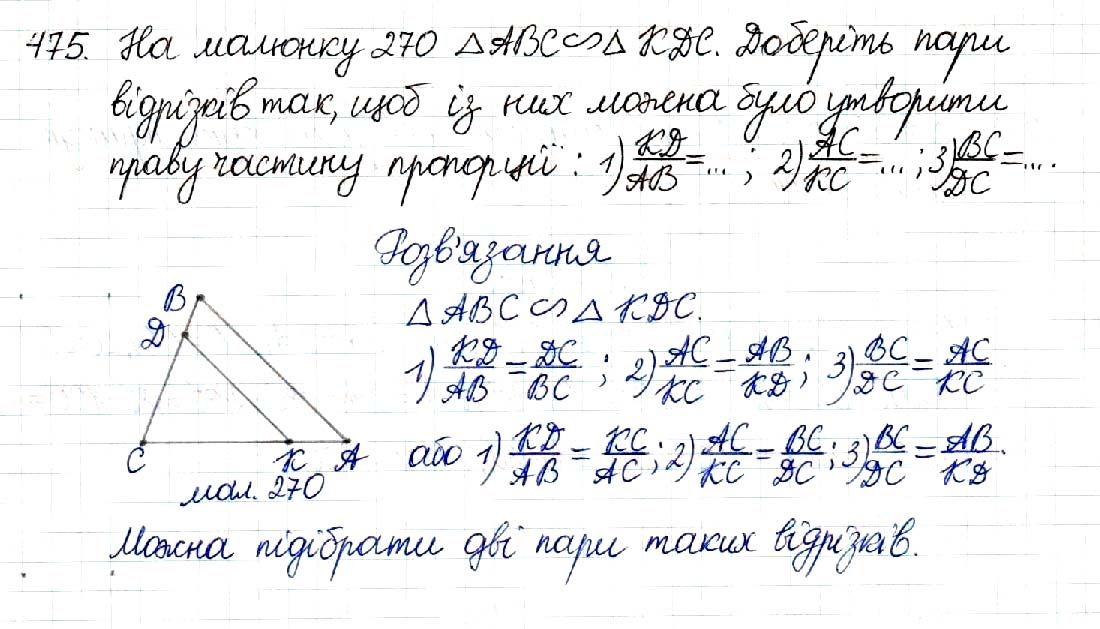 475. На малюнку 270 △ABC∽△KDC. Доберіть пари
відрізків так, щоб із них можна було утворити
праву частину пропорції: 1) KD/AB = ...; 2) AC/KC = ...; 3) BC/DC = ....
Розв'язання
△ABC ∽ △KDC.
1) KD/AB = DC/BC; 2) AC/KC = AB/KD; 3) BC/DC = AC/KC
або 1) KD/AB = KC/AC; 2) AC/KC = BC/DC; 3) BC/DC = AB/KD.
B
D
C K A
мал. 270
Можна підібрати дві пари таких відрізків.